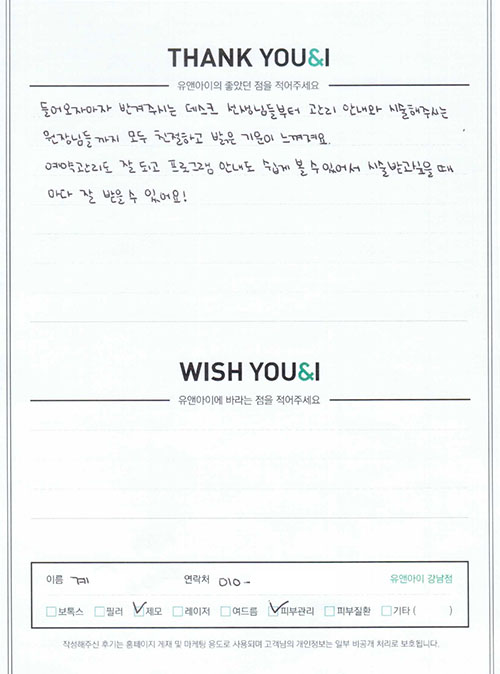 THANK YOU&I
유앤아이의 좋았던 점을 적어주세요
들어오자마자 반겨주시는 데스크 선생님들부터 관리 안내와 시술해주시는
원장님들까지 모두 친절하고 밝은 기운이 느껴져요.
예약관리도 잘 되고 프로그램 안내도 쉽게 볼 수 있어서 시술받고싶을 때
마다 잘 받을 수 있어요!
WISH YOU&I
유앤아이에 바라는 점을 적어주세요
이름 계 연락처 010- 유앤아이 강남점
보톡스 필러 제모 레이저 여드름 피부관리 피부질환 기타 ( )
작성해주신 후기는 홈페이지 게재 및 마케팅 용도로 사용되며 고객님의 개인정보는 일부 비공개 처리로 보호됩니다.